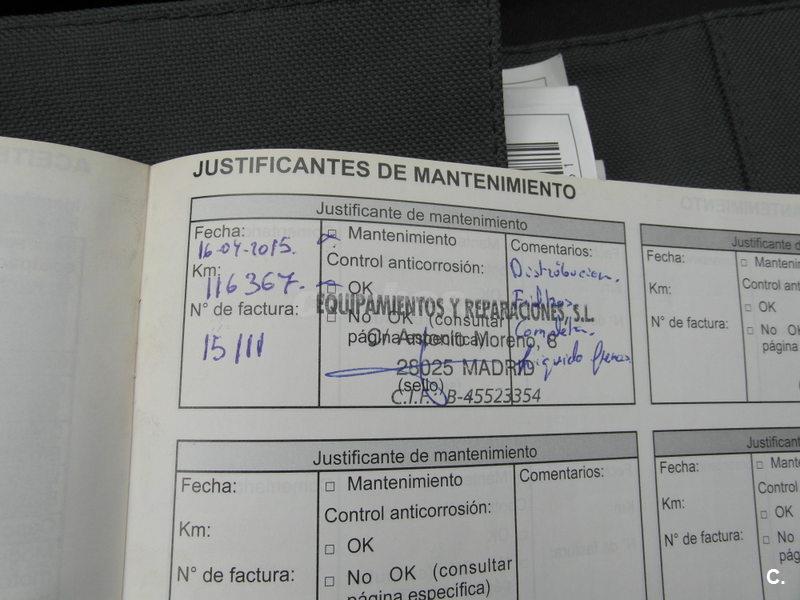 JUSTIFICANTES DE MANTENIMIENTO
Justificante de mantenimiento
Fecha:
16-04-2015.
Km:
116367.
N° de factura:
15/111
□ Mantenimiento
Control anticorrosión:
□ OK
□ No OK (consultar
página específica)
(sello)
Comentarios:
Distribucion.
Filtros
Completa.
Liquido frenos
EQUIPAMIENTOS Y REPARACIONES, S.L.
C/ Antonio Moreno, 6
28025 MADRID
C.I.F. B-45523354
Justificante d
Fecha:
Km:
N° de factura:
□ Manten
Control anti
□ OK
□ No OK
página
Justificante de mantenimiento
Fecha:
Km:
N° de factura:
□ Mantenimiento
Control anticorrosión:
□ OK
□ No OK (consultar
página específica)
Comentarios:
Justificant
Fecha:
Km:
N° de factura:
□ Mante
Control
□ OK
□ No
pág
C.